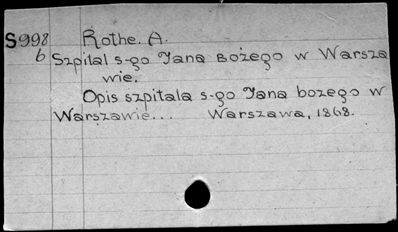 S998 Rothe. A.
b Szpital s-go Jana Bożego w Warsza
wie.
Opis szpitala s-go Jana bożego w
Warszawie... Warszawa, 1868.